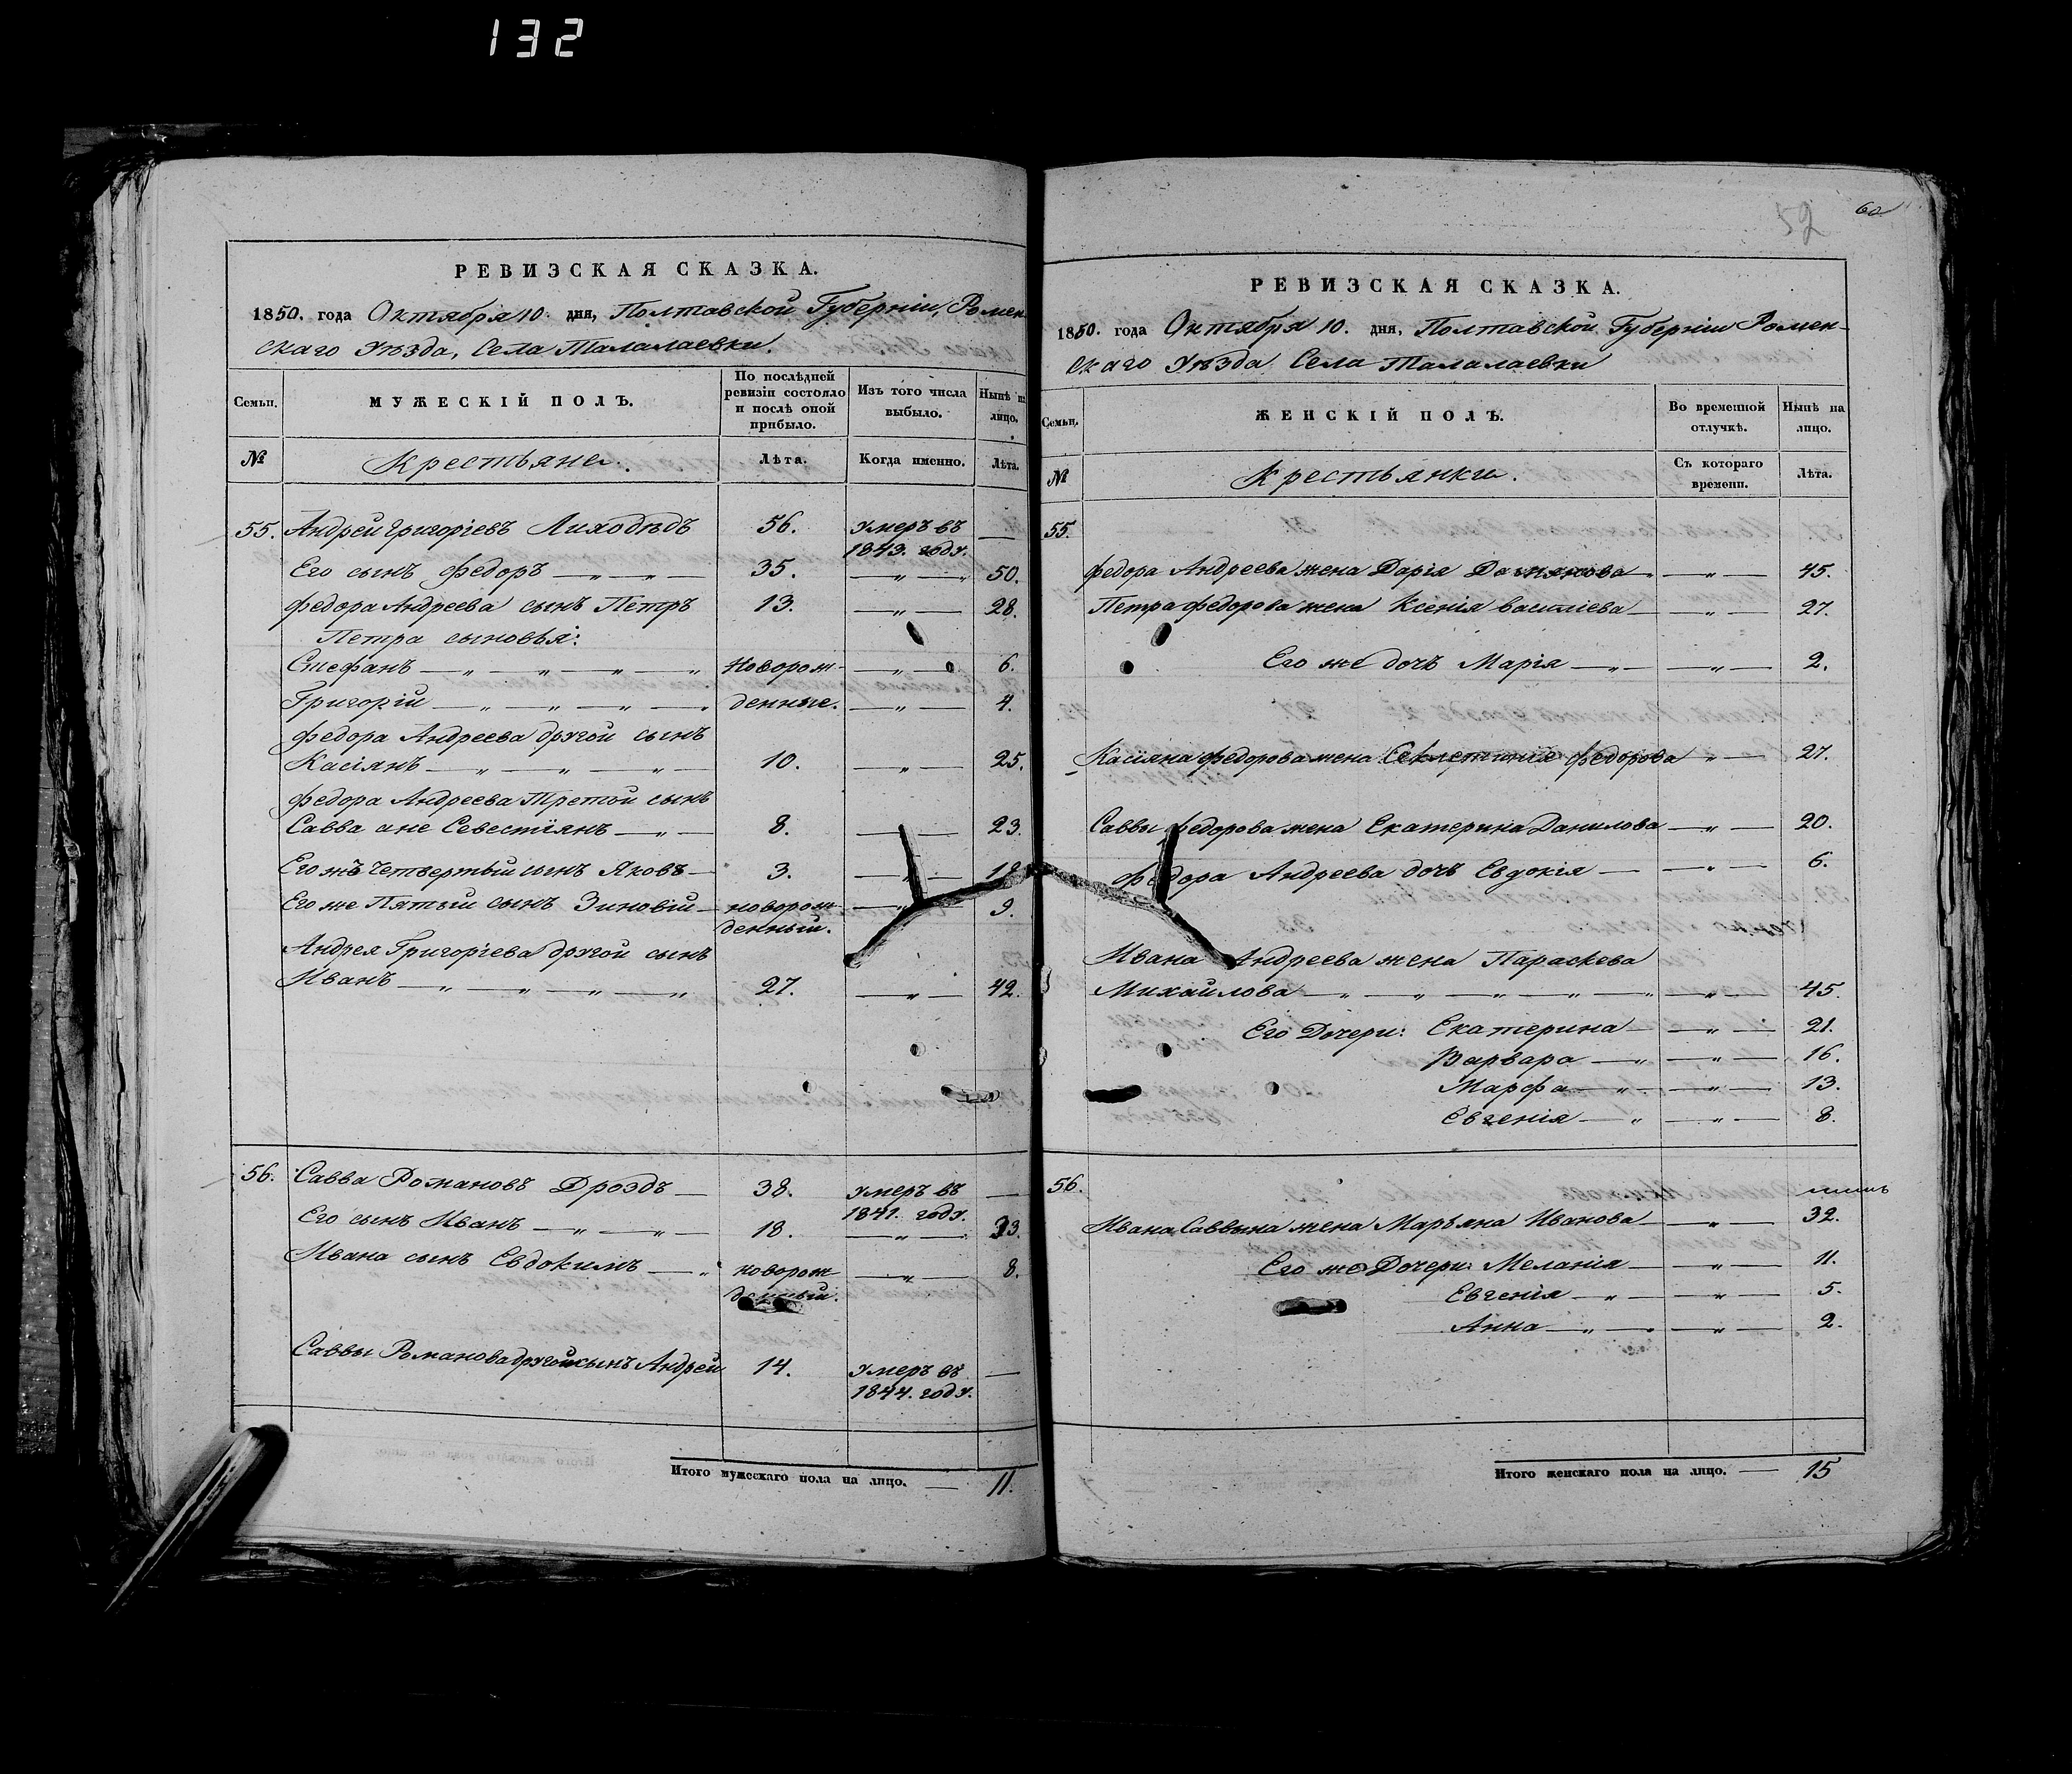 132
РЕВИЗСКАЯ СКАЗКА.
1850. года Октября 10. дня, Полтавской Губерніи, Ромен-
скаго Уѣзда, Села Талалаевки.
Семьи.
МУЖЕСКІЙ ПОЛЪ.
По послѣдней ревизіи состояло и послѣ оной прибыло.
Изъ того числа выбыло.
Нынѣ на лицо.
№ Крестьяне. Лѣта. Когда именно. Лѣта.
55. Андрей Григоріевъ Лиходѣдъ 56. Умеръ въ —
1843. году.
Его сынъ Федоръ — „ — „ — 35. — „ — 50.
Федора Андреева сынъ Петръ 13. — „ — 28.
Петра сыновья:
Стефанъ — „ — „ — „ — „ Новорож- — „ — 6.
Григорій — „ — „ — „ — „ денные. — „ — 4.
Федора Андреева другой сынъ
Касіянъ — „ — „ — „ — 10. — „ — 25.
Федора Андреева Третой сынъ
Савва а не Севестіянъ — „ — 8. — „ — 23.
Его жъ Четвертый сынъ Яковъ — 3. — „ — 18
Его же Пятый сынъ Зиновій — новорож- — „ — 9.
денный.
Андрея Григоріева другой сынъ
Иванъ — „ — „ — „ — „ 27. — „ — 42.
56. Савва Романовъ Дроздъ — 38. Умеръ въ —
1841. году.
Его сынъ Иванъ — „ — „ — 18. — „ — 33.
Ивана сынъ Евдокимъ — „ новорож- — „ — 8.
денный.
Саввы Романова другой сынъ Андрей 14. Умеръ въ —
1844. году.
Итого мужескаго пола на лицо. — 11.
52 60
РЕВИЗСКАЯ СКАЗКА.
1850. года Октября 10. дня, Полтавской Губерніи Ромен-
скаго Уѣзда Села Талалаевки
Семьи.
ЖЕНСКІЙ ПОЛЪ.
Во временной отлучкѣ.
Нынѣ на лицо.
№ Крестьянки. Съ котораго времени. Лѣта.
55.
Федора Андреева жена Дарія — „ — 45.
Петра Федорова жена Ксенія Василіева — „ — 27.
Его же дочь Марія — „ — „ — 2.
Касіяна Федорова жена Секлетинія Федорова „ — 27.
Саввы Федорова жена Екатерина Данилова — „ — 20.
Федора Андреева дочь Евдокія — — „ — 6.
Ивана Андреева жена Параскева
Михайлова — „ — „ — „ — „ — „ — „ — 45.
Его Дочери: Екатерина — — „ — 21.
Варвара — „ — „ — 16.
Марфа — „ — „ — 13.
Евгенія — „ — „ — 8.
56.
Ивана Саввина жена Марьяна Иванова — „ — 32.
Его же Дочери: Меланія — — „ — 11.
Евгенія — „ — „ — 5.
Анна — „ — „ — 2.
Итого женскаго пола на лицо. — 15